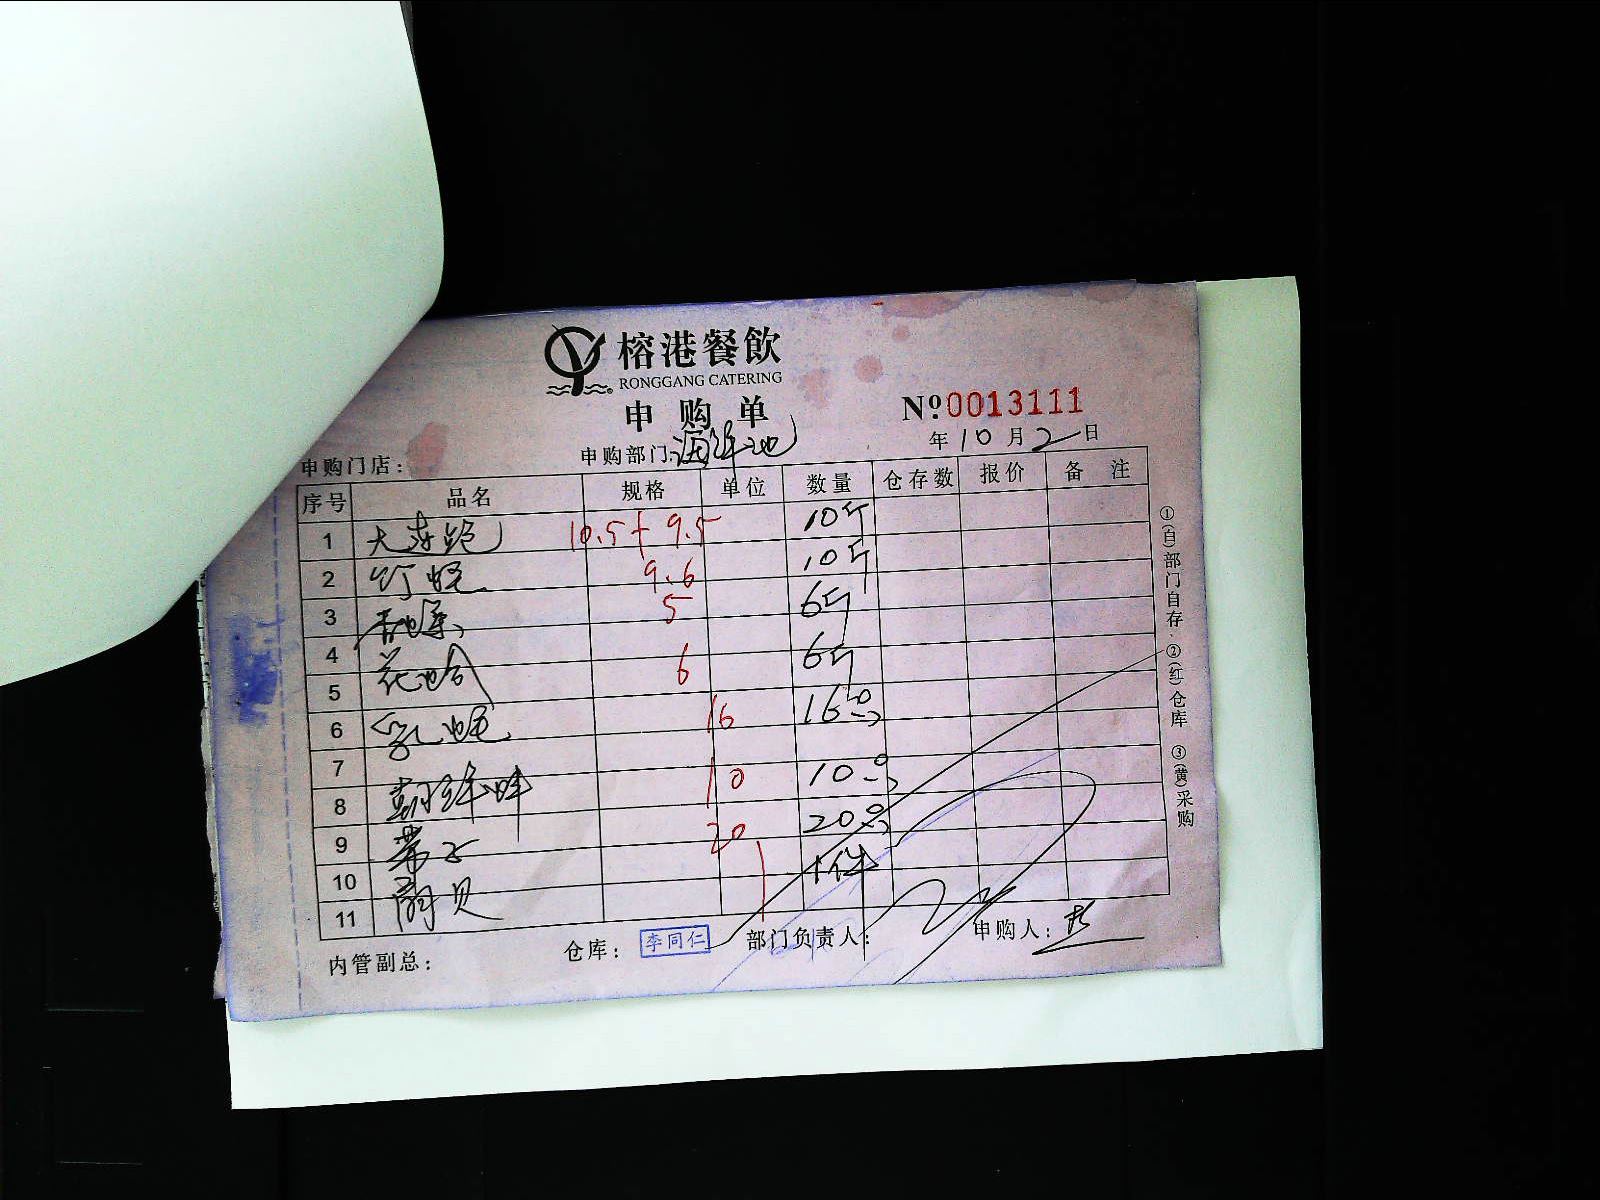 榕港餐飲
RONGGANG CATERING
申购单
№ 0013111
申购门店： 申购部门：海鲜池 年10月2日
序号 品名 规格 单位 数量 仓存数 报价 备注
1 10.5+9.5 10斤
2 9.6 10斤
3 5 6斤
4 花哈 6 6斤
5
6 16 16只
7
8 10 10只
9 带子 20 20只
10 1 1件
11 扇贝
内管副总： 仓库：李同仁 部门负责人： 申购人：
①(白)部门自存 ②(红)仓库 ③(黄)采购